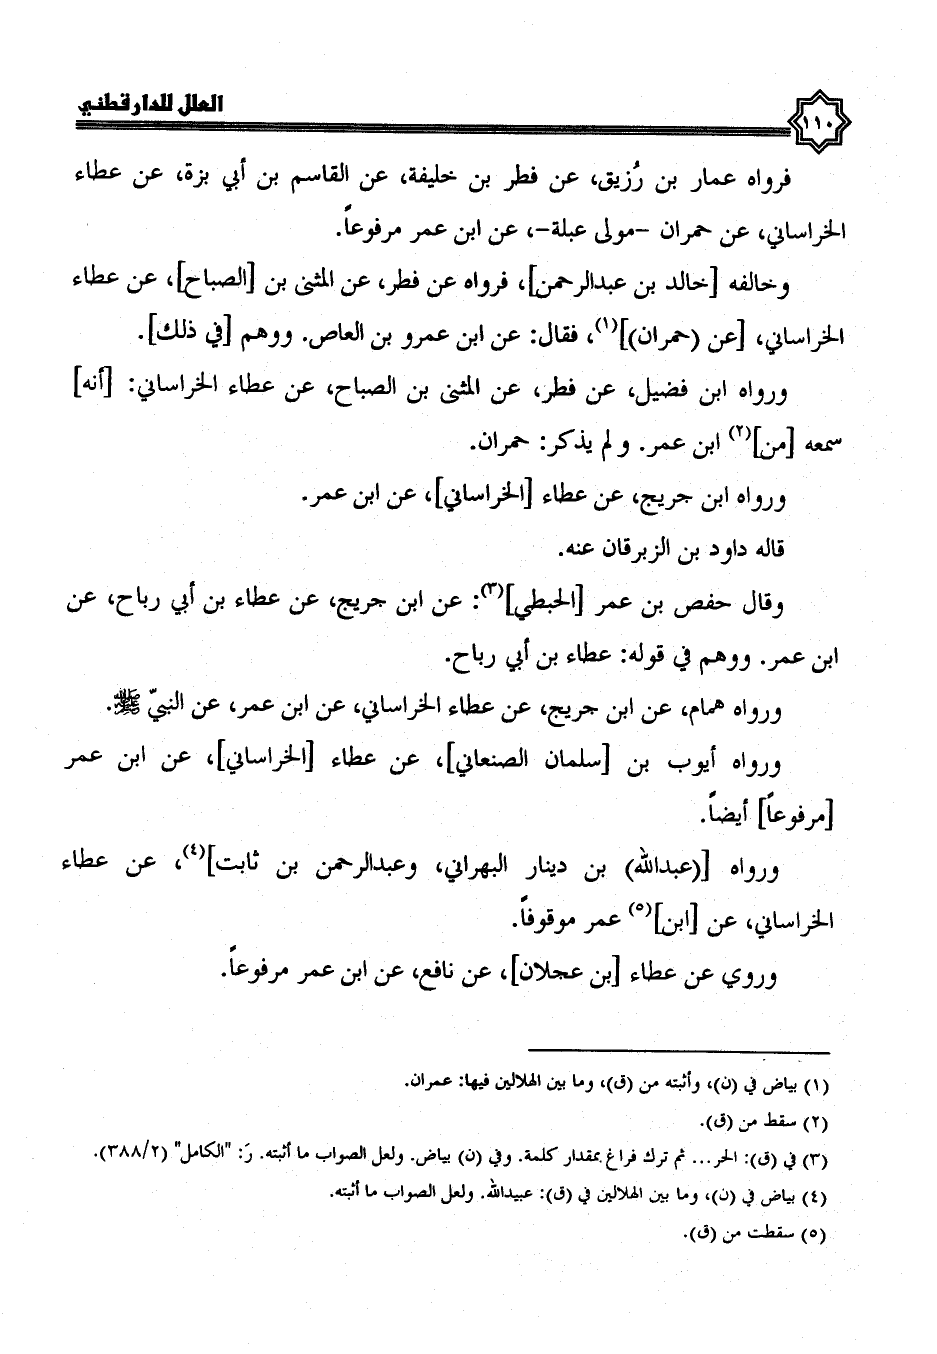 العلل للدارقطني
١١٠
فرواه عمار بن رُزيق، عن فطر بن خليفة، عن القاسم بن أبي بزة، عن عطاء
الخراساني، عن حمران -مولى عبلة-، عن ابن عمر مرفوعاً.
وخالفه [خالد بن عبدالرحمن]، فرواه عن فطر، عن المثنى بن [الصباح]، عن عطاء
الخراساني، [عن (حمران)]⁽¹⁾، فقال: عن ابن عمرو بن العاص. ووهم [في ذلك].
ورواه ابن فضيل، عن فطر، عن المثنى بن الصباح، عن عطاء الخراساني: [أنه]
سمعه [من]⁽٢⁾ ابن عمر. ولم يذكر: حمران.
ورواه ابن جريج، عن عطاء [الخراساني]، عن ابن عمر.
قاله داود بن الزبرقان عنه.
وقال حفص بن عمر [الحبطي]⁽٣⁾: عن ابن جريج، عن عطاء بن أبي رباح، عن
ابن عمر. ووهم في قوله: عطاء بن أبي رباح.
ورواه همام، عن ابن جريج، عن عطاء الخراساني، عن ابن عمر، عن النبيّ ﷺ.
ورواه أيوب بن [سلمان الصنعاني]، عن عطاء [الخراساني]، عن ابن عمر
[مرفوعاً] أيضاً.
ورواه [(عبدالله) بن دينار البهراني، وعبدالرحمن بن ثابت]⁽٤⁾، عن عطاء
الخراساني، عن [ابن]⁽٥⁾ عمر موقوفاً.
وروي عن عطاء [بن عجلان]، عن نافع، عن ابن عمر مرفوعاً.
(١) بياض في (ن)، وأثبته من (ق)، وما بين الهلالين فيها: عمران.
(٢) سقط من (ق).
(٣) في (ق): الحر... ثم ترك فراغ بمقدار كلمة. وفي (ن) بياض. ولعل الصواب ما أثبته. رَ: "الكامل" (٣٨٨/٢).
(٤) بياض في (ن)، وما بين الهلالين في (ق): عبيدالله. ولعل الصواب ما أثبته.
(٥) سقطت من (ق).